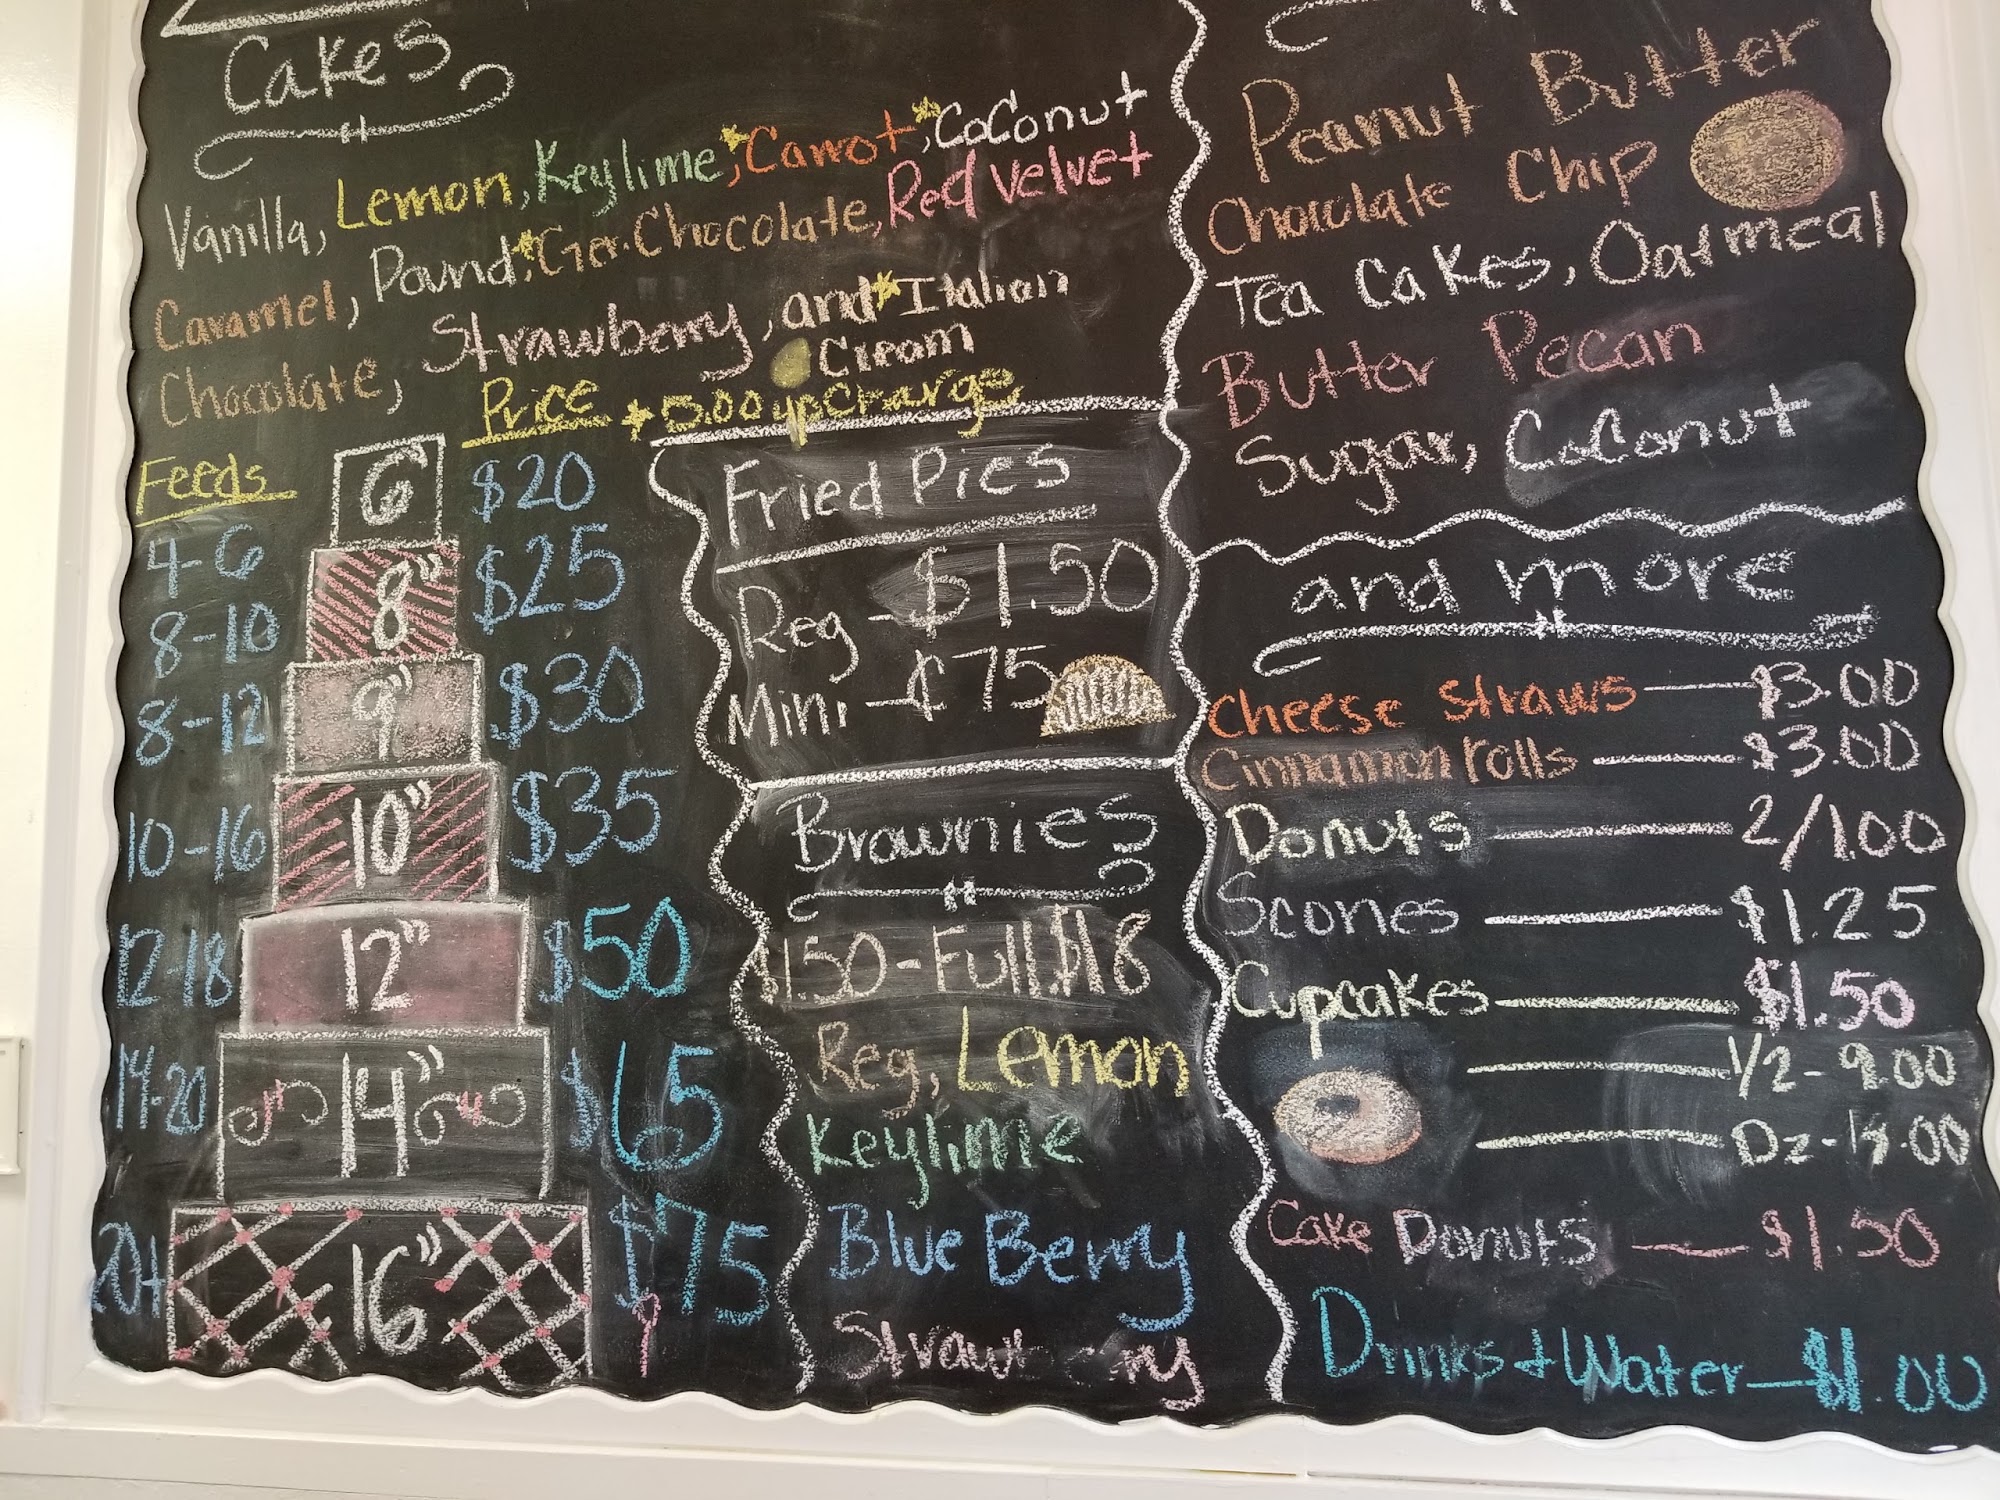 Cakes
Vanilla, Lemon, Keylime*, Carrot*, CoConut
Caramel, Pound,*Ger. Chocolate, Red Velvet
Chocolate, Strawberry, and *Italian
Cream
Price +5.00 upCharge
Feeds
4-6 6" $20
8-10 8" $25
8-12 9" $30
10-16 10" $35
12-18 12" $50
14-20 14" $65
20+ 16" $75
Fried Pies
Reg - $1.50
Mini - ¢75
Brownies
$1.50 - Full $18
Reg, Lemon
Keylime
Blue Berry
Strawberry
Peanut Butter
Chocolate Chip
Tea Cakes, Oatmeal
Butter Pecan
Sugar, CoConut
and more
Cheese Straws $3.00
Cinnamon rolls $3.00
Donuts 2/1.00
Scones $1.25
Cupcakes $1.50
1/2 - 9.00
Dz -
Cake Donuts $1.50
Drinks + Water $1.00